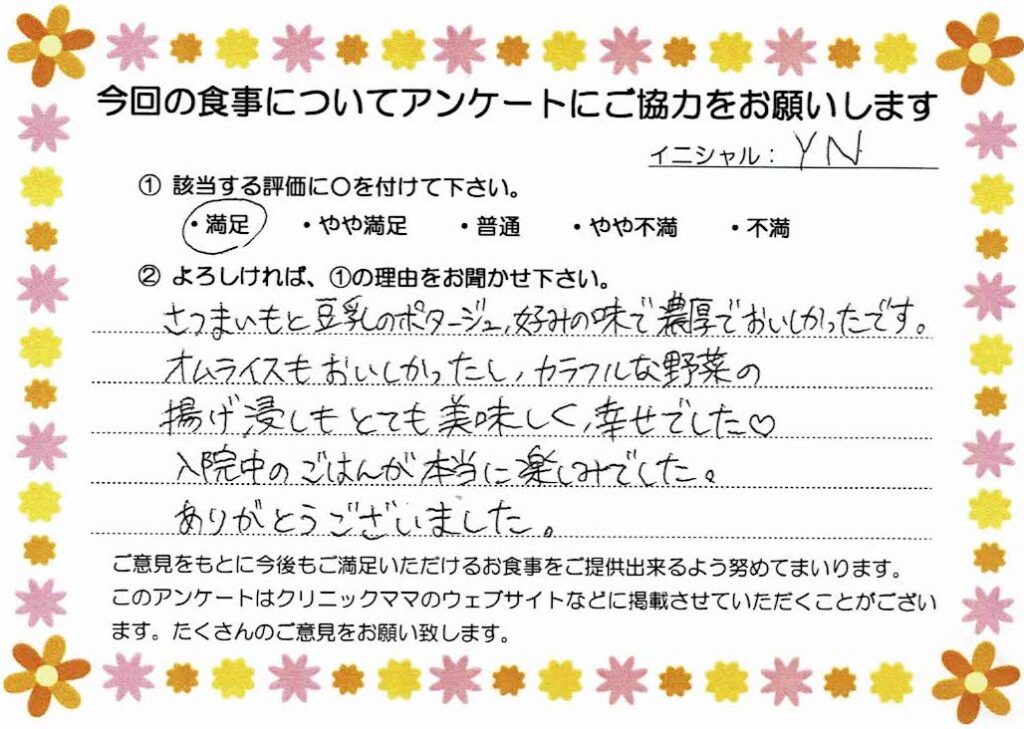 今回の食事についてアンケートにご協力をお願いします
イニシャル： YN
① 該当する評価に〇を付けて下さい。
・満足 ・やや満足 ・普通 ・やや不満 ・不満
② よろしければ、①の理由をお聞かせ下さい。
さつまいもと豆乳のポタージュ、好みの味で濃厚でおいしかったです。
オムライスもおいしかったし、カラフルな野菜の
揚げ浸しもとても美味しく、幸せでした♡
入院中のごはんが本当に楽しみでした。
ありがとうございました。
ご意見をもとに今後もご満足いただけるお食事をご提供出来るよう努めてまいります。
このアンケートはクリニックママのウェブサイトなどに掲載させていただくことがござい
ます。たくさんのご意見をお願い致します。